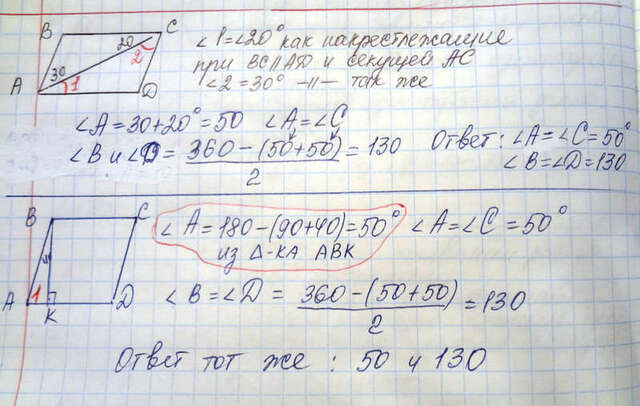 B C
20
2
30
1
A D
∠1=∠20° как накрестлежащие
при BC||AD и секущей AC
∠2=30° -||- так же
∠A=30+20°=50 ∠A=∠C
∠B и ∠D = 360-(50+50) = 130
2
Ответ: ∠A=∠C=50°
∠B=∠D=130
B C
A 1 K D
∠A=180-(90+40)=50°
из Δ-ка ABK
∠A=∠C=50°
∠B=∠D = 360-(50+50) = 130
2
Ответ тот же : 50 и 130